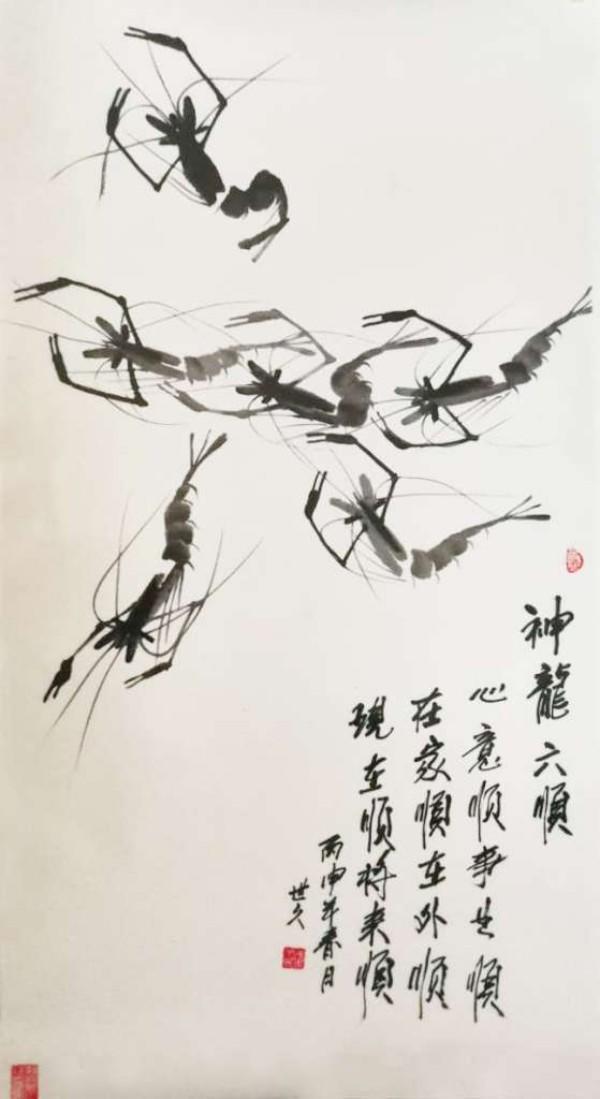 神龍六順
心意順事世順
在家順在外順
現在順将来順
丙申年春月
世久